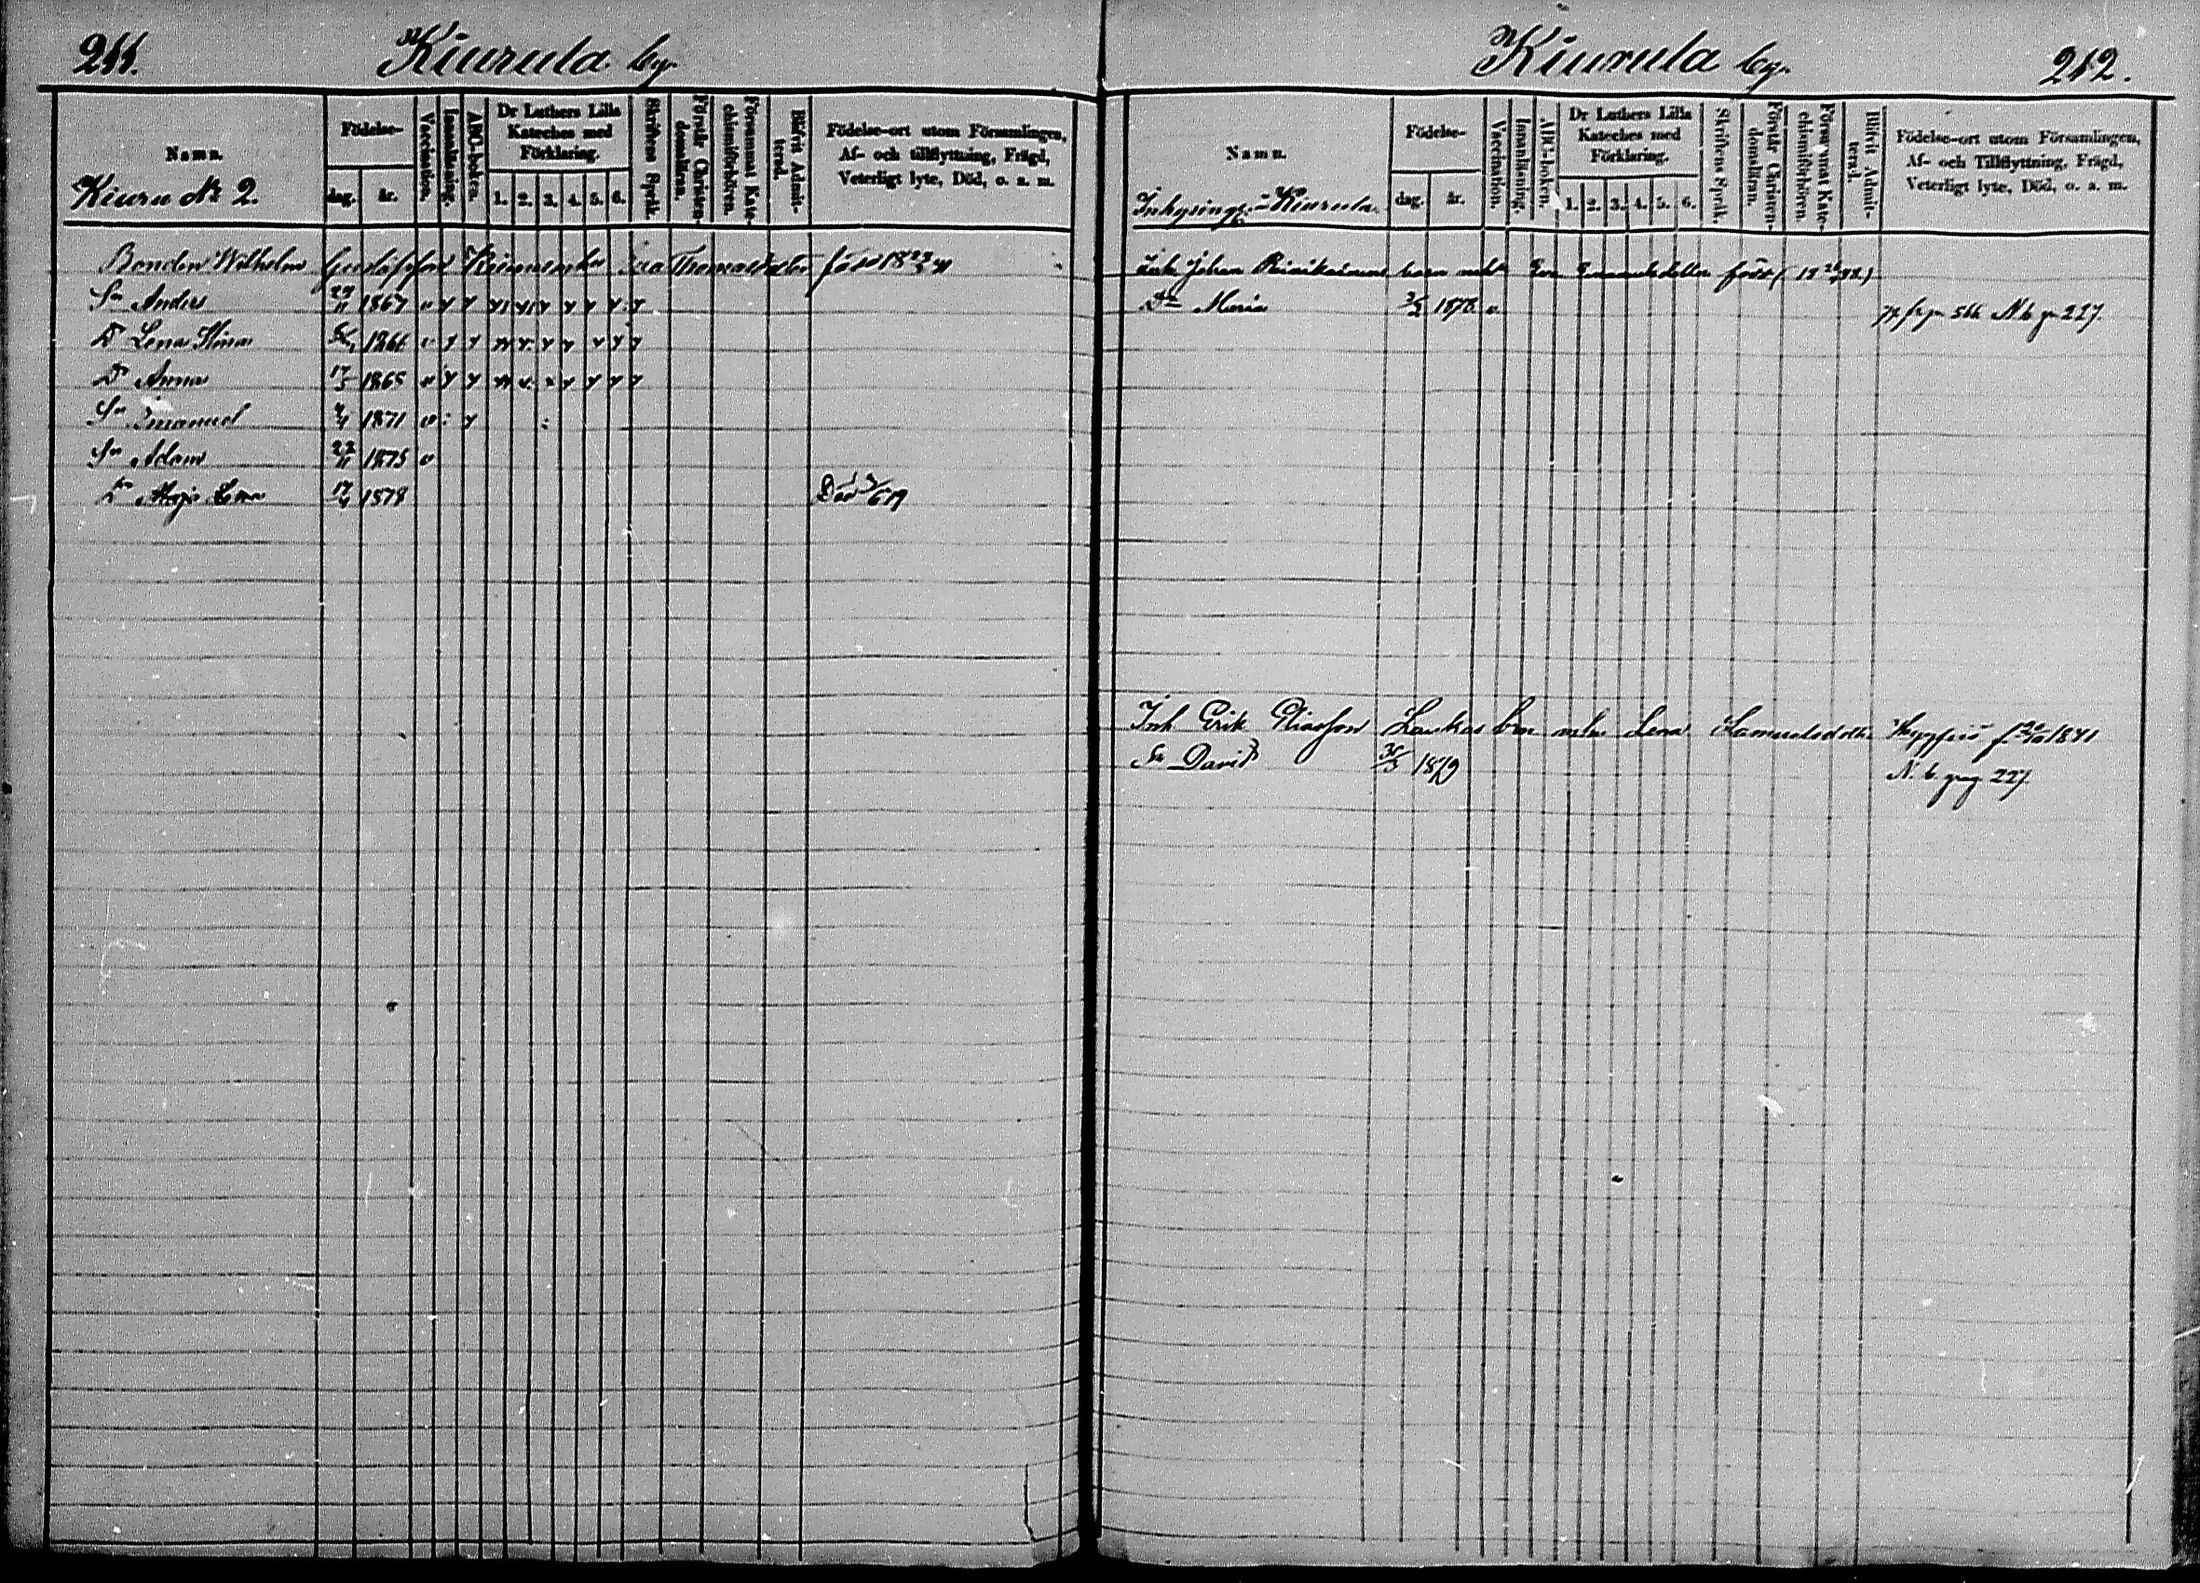 211.
Kiurula by.
Namn.
Kiuru № 2.
Födelse-
dag.
år.
Vaccination.
Innanläsning.
ABC-boken.
Dr Luthers Lilla
Kateches med
Förklaring.
1. 2. 3. 4. 5. 6.
Skriftens Språk.
Förstår Christen-
domsläran.
Försummat Kate-
chismiförhören.
Blifvit Admit-
terad.
Födelse-ort utom Församlingen,
Af- och tillflyttning, Frägd,
Veterligt lyte, Död, o. a. m.
Bonden Wilhelm Gustafsson Thomasdotter född 18
Sn Anders 1867 v y y y y y y y y
Dr Lena Stina 1866 v y y v v y y
Dr Anna 17/5 1865 v y y y y y y
Sn Emanuel 1871 v y
Sn Adam 22/11 1875 v
Dr Lena 17/4 1878 Död 79
Kiurula by.
212.
Namn.
Inhysingar i Kiurula.
Födelse-
dag.
år.
Vaccination.
Innanläsning.
ABC-boken.
Dr Luthers Lilla
Kateches med
Förklaring.
1. 2. 3. 4. 5. 6.
Skriftens Språk.
Förstår Christen-
domsläran.
Försummat Kate-
chismiförhören.
Blifvit Admit-
terad.
Födelse-ort utom Församlingen,
Af- och Tillflyttning, Frägd,
Veterligt lyte, Död, o. a. m.
Inh. Johan barn Eva Emanuelsdotter född (18
Dr Maria 1878 v. N. b. p 227.
Inh Erik Eliasson Laukas barn Lena Samuelsdotter f. 1841
Sn David 1879 N. b. pag 227.